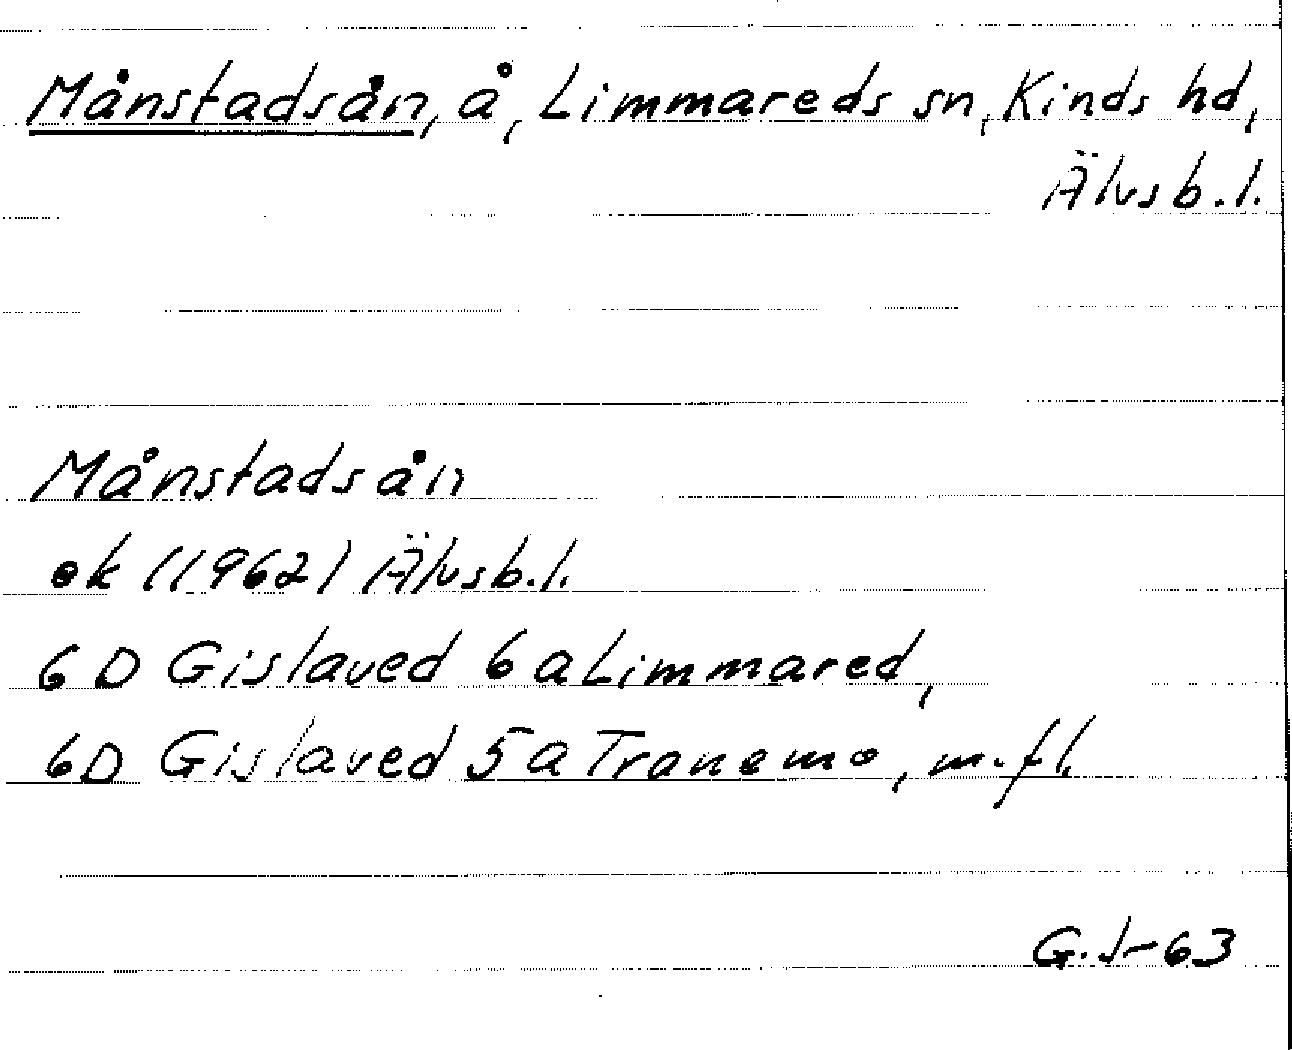 Månstadsån, å, Limmareds sn, Kinds hd,
Älvsb.l.
Månstadsån
ek (1962) Älvsb.l.
6D Gislaved 6a Limmared,
6D Gislaved 5a Tranemo, m.fl.
G.J-63